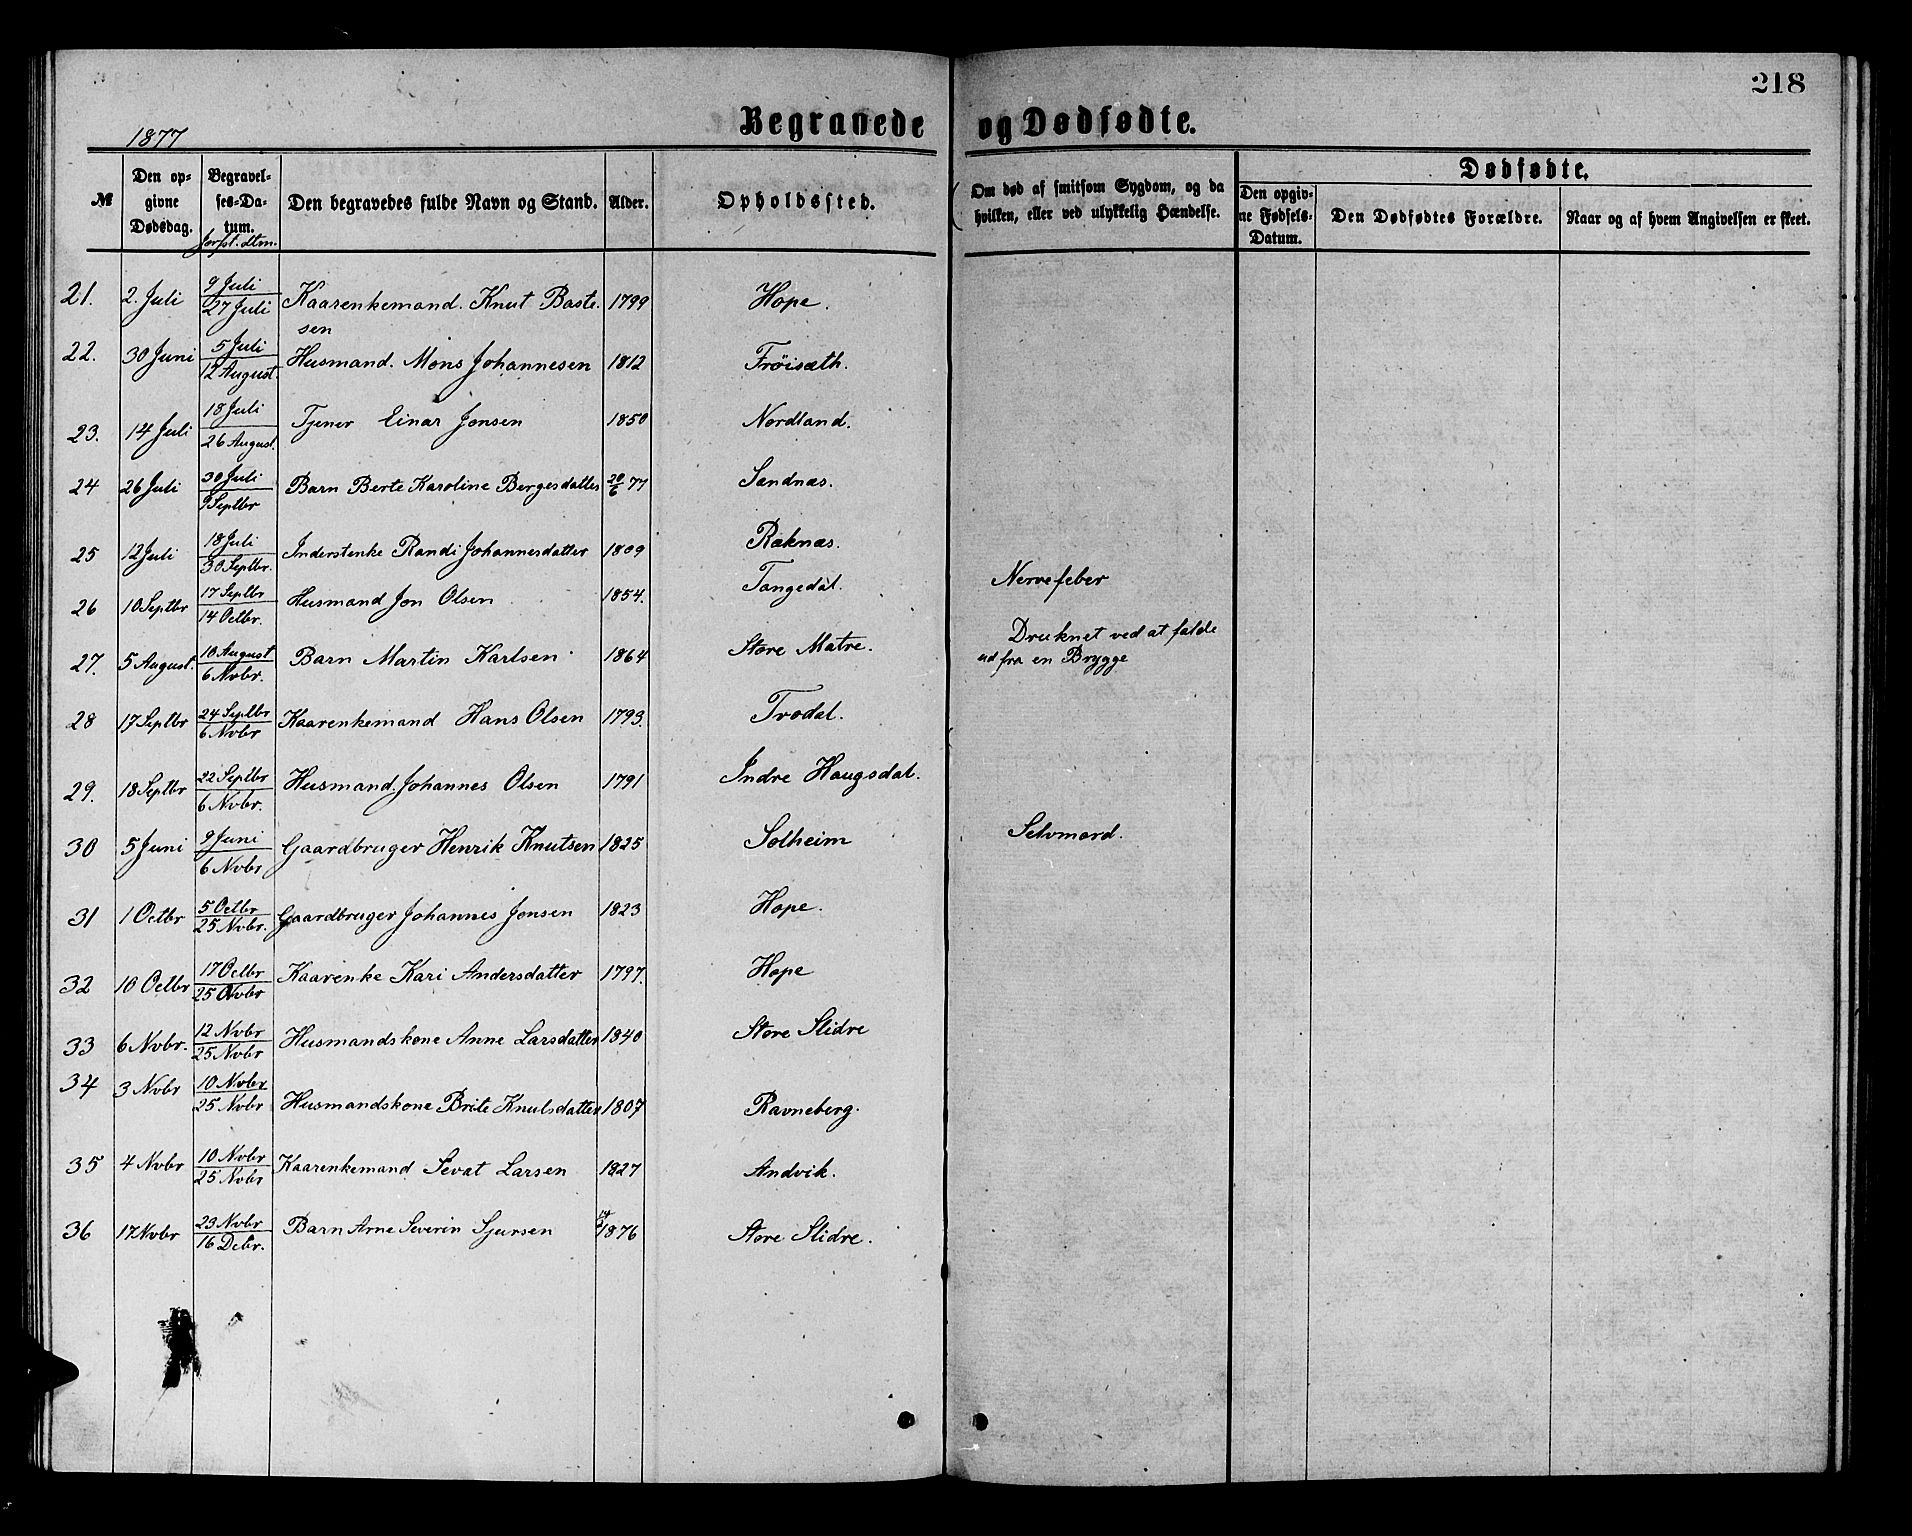 218
Begravede og Dødfødte.
1877
№ | Den opgivne Dødsdag. | Begravelses-Datum. Jorfst. dtm. | Den begravedes fulde Navn og Stand. | Alder. | Opholdssted. | Om død af smitsom Sygdom, og da hvilken, eller ved ulykkelig Hændelse. | Dødfødte. | Den opgivne Fødsels-Datum. | Den Dødfødtes Forældre. | Naar og af hvem Angivelsen er skeet.
21. | 2. Juli | 9 Juli / 27 Juli | Kaarenkemand. Knut Bastesen | 1799 | Hope.
22. | 30 Juni | 5 Juli / 12 August. | Husmand. Mons Johannesen | 1812 | Frøisæth.
23. | 14 Juli | 18 Juli / 26 August. | Tjener Einar Jonsen | 1850 | Nordland.
24 | 26 Juli | 30 Juli / 9 Septbr | Barn Berte Karoline Bergesdatter | 20/6 77 | Sandnæs.
25 | 12 Juli | 18 Juli / 30 Septbr. | Inderstenke Randi Johannesdatter | 1809 | Raknæs.
26 | 10 Septbr | 17 Septbr / 14 Octbr. | Husmand Jon Olsen | 1854. | Tangedal. | Nervefeber
27. | 5 August. | 10 August / 6 Nvbr. | Barn Martin Karlsen | 1864 | Store Matre. | Druknet ved at falde ud fra en Brygge
28 | 17 Septbr | 24 Septbr / 6 Nvbr | Kaarenkemand Hans Olsen | 1793. | Trodal.
29. | 18 Septbr | 22 Septbr / 6 Nvbr. | Husmand. Johannes Olsen | 1791 | Indre Haugsdal.
30 | 5 Juni | 9 Juni / 6 Nvbr | Gaardbruger Henrik Knutsen | 1825 | Solheim | Selvmord.
31 | 1 Octbr | 5 Octbr / 25 Nvbr. | Gaardbruger Johannes Jonsen | 1823 | Hope.
32 | 10 Octbr | 17 Octbr / 25 Nvbr | Kaarenke Kari Andersdatter | 1797. | Hope
33 | 6 Nvbr. | 12 Nvbr / 25 Nvbr | Husmandskone Anne Larsdatter | 1840 | Store Slidre
34 | 3 Nvbr | 10 Nvbr / 25 Nvbr | Husmandskone Brite Knutsdatter | 1807 | Ravneberg.
35 | 4 Nvbr | 10 Nvbr / 25 Nvbr | Kaarenkemand Sevat Larsen | 1827 | Andvik.
36 | 17 Nvbr | 23 Nvbr / 16 Debr. | Barn Arne Severin Sjursen | 1876 | Store Slidre.